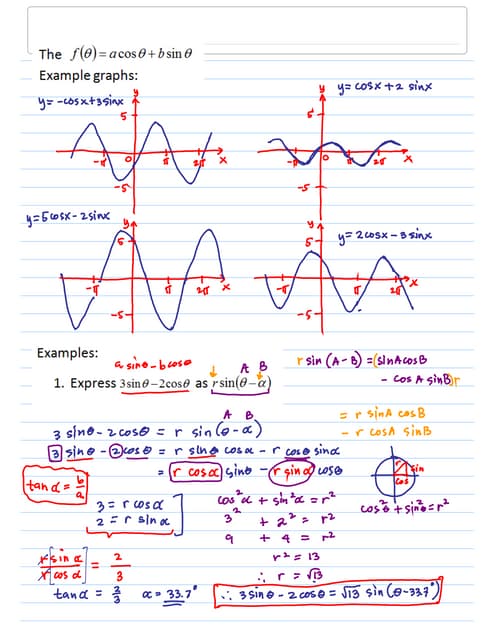 The f(θ) = a cos θ + b sin θ
Example graphs:
y = -cosx+3sinx
y
5
-π
0
π
2π
x
-5
y = cosx + 2 sinx
y
5
-π
0
π
2π
x
-5
y=5cosx-2sinx
y
5
-π
π
2π
x
-5
y = 2cosx - 3 sinx
y
5
-π
π
2π
x
-5
Examples:
a sinθ - b cosθ
A B
1. Express 3sinθ−2cosθ as rsin(θ−α)
r sin (A-B) = (sinAcosB
- cos A sinB)r
= r sinA cosB
- r cosA sinB
A B
3 sinθ - 2 cosθ = r sin(θ-α)
3 sinθ - 2 cosθ = r sinθ cosα - r cosθ sinα
= (r cosα) sinθ - (r sinα) cosθ
tanα = b/a
3 = r cosα
2 = r sinα
cos²α + sin²α = r²
3² + 2² = r²
9 + 4 = r²
r² = 13
∴ r = √13
r
sin
cos
cos²θ + sin²θ = r²
r sin α / r cos α = 2/3
tanα = 2/3 α = 33.7°
∴ 3sinθ - 2cosθ = √13 sin (θ-33.7°)